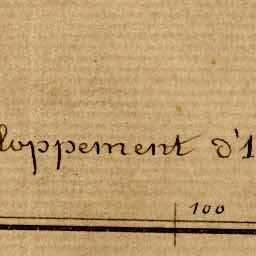 loppement d'1
100